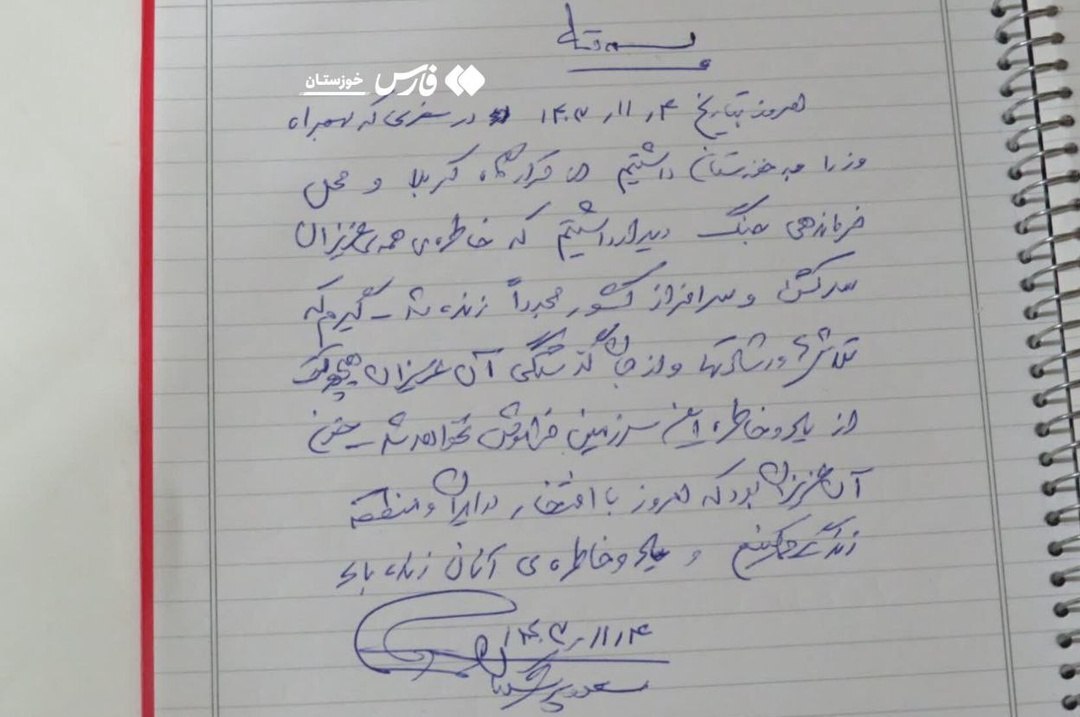 بسمه تعالی
فارس خوزستان
امروز بتاریخ ۱۴۰۳,۱۱,۴ در سفری که همراه
وزرا به خوزستان داشتیم از قرارگاه کربلا و محل
فرماندهی جنگ دیدار داشتیم که خاطره‌ی همه‌ی عزیزان
سرکش و سرافراز کشور مجدداً زنده شد که
تلاش و رشادتها و از جان گذشتگی آن عزیزان هیچوقت
از یاد و خاطره این سرزمین فراموش نخواهد شد
آن عزیزان بود که امروز با افتخار در ایران و منطقه
زندگی میکنیم و یاد و خاطره‌ی آنان زنده باد
۱۴۰۳,۱۱,۴
مسعود پزشکیان